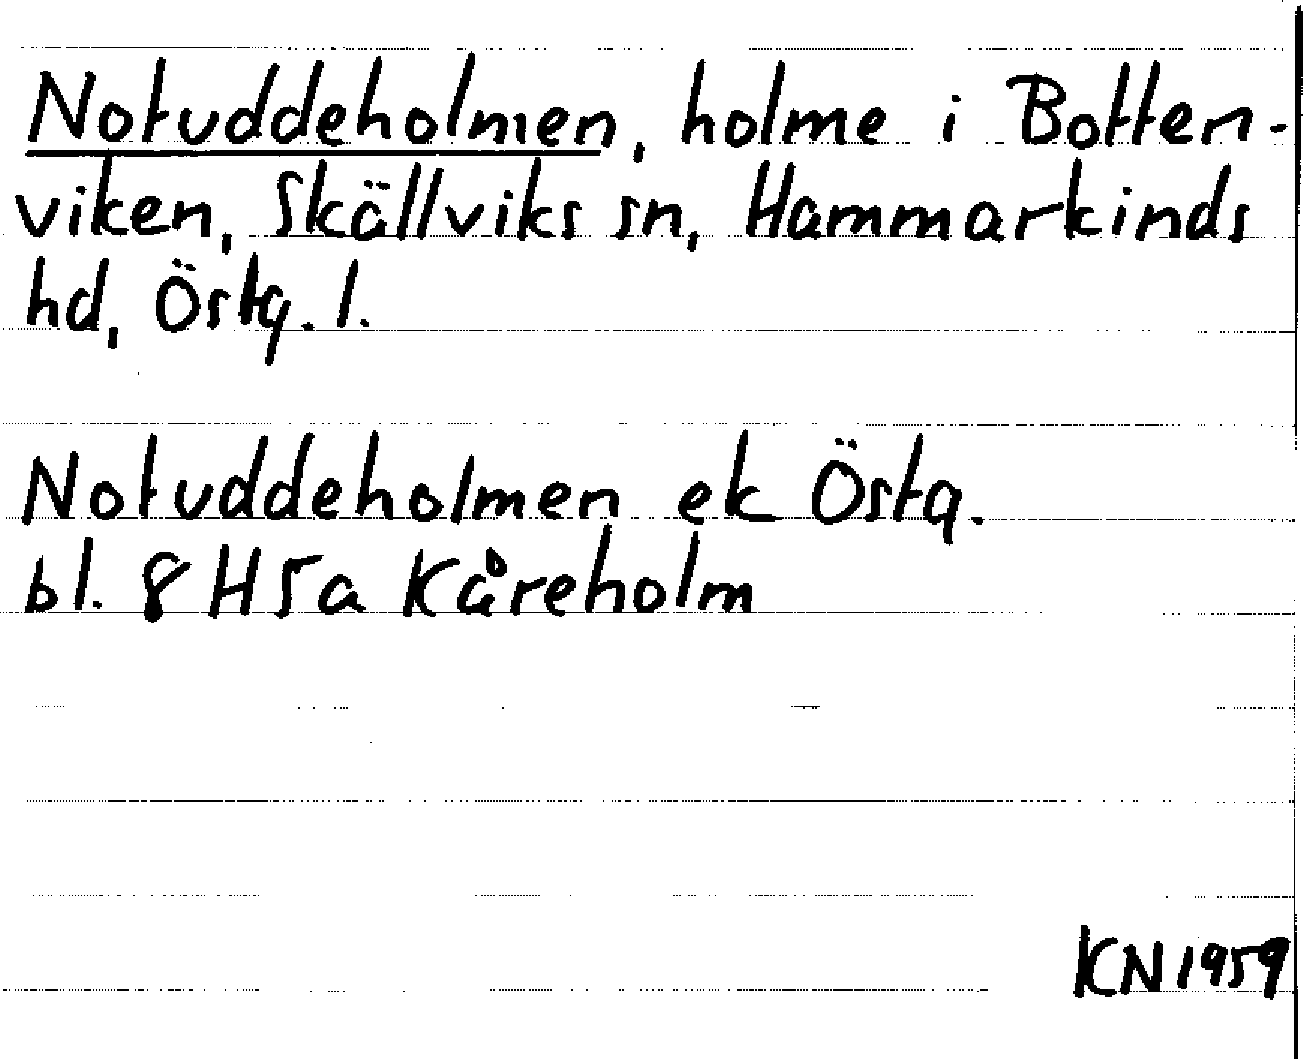 Notuddeholmen, holme i Botten-
viken, Skällviks sn, Hammarkinds
hd, Östg. l.
Notuddeholmen ek Östg.
bl. 8 H5a Kåreholm
KN 1959